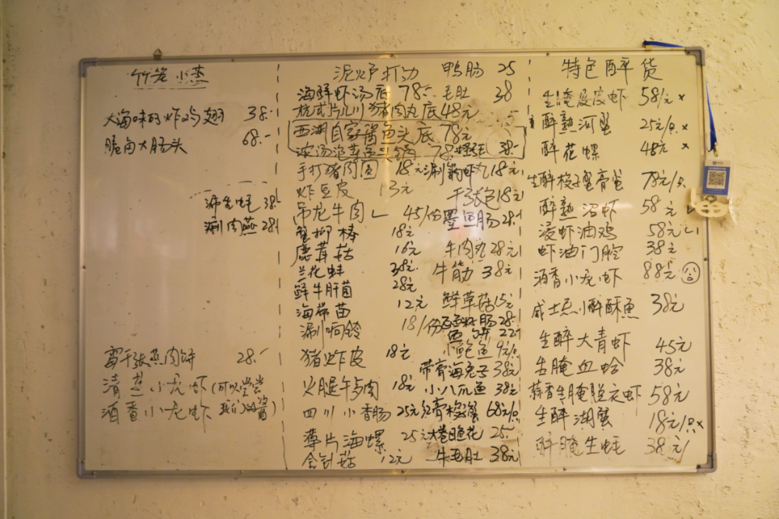 大海味的炸鸡翅 38.-
脆卤大肠头 68.-
涮肉燕 28
霉干张蒸肉饼 28.-
清蒸小龙虾(可以尝尝
酒香小龙虾 我们的酱)
泥炉打边 鸭肠 25
海鲜虾汤底 78.- 毛肚 38
杭式片儿川猪肉丸底 48元
西湖自家酱鱼头底 78元
手打猪肉 18元 涮 虾丸 18元
炸豆皮 13元
吊龙牛肉 45/份 墨鱼肠 28
棒 18元
鹿茸菇 16元 牛肉丸 28元
兰花蚌 38元 牛筋 38元
鲜牛肝菌 28元
海带苗 12元 鲜草菇 15元
涮响铃 18/份
猪炸皮 18元 小鲍鱼
带膏海兔子 38元
火腿午歺肉 18元 小八爪鱼 38元
四川小香肠 25元 68元/只
薄片海螺 25元 25.-
金针菇 12元 牛毛肚 38元
特色醉货
生腌皮皮虾 58/ x
醉熟河蟹 25元/只 x
醉花螺 48元 x
生醉梭子蟹膏蟹 78元/只
醉熟沼虾 58元
浸虾油鸡 58元
虾油门腔 38元
酒香小龙虾 88元
威士忌小酥鱼 38元
生醉大青虾 45元
生腌血蛤 38元
58元
生醉湖蟹 18元/只 x
生蚝 38元/